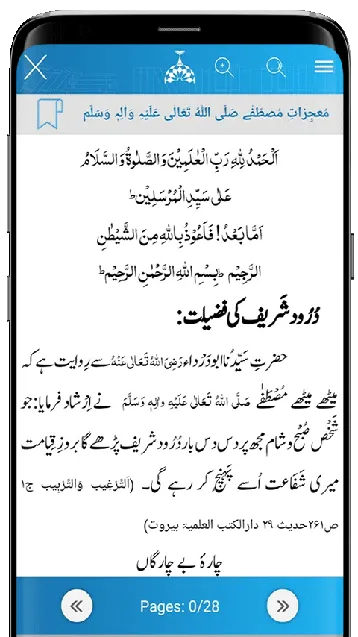 مُعجِزاتِ مصطَفٰے صَلَّی اللہُ تَعَالٰی عَلَیْہِ وَاٰلِہٖ وَسَلَّم
اَلْحَمْدُ لِلّٰہِ رَبِّ الْعٰلَمِیْنَ وَالصَّلٰوۃُ وَالسَّلَامُ
عَلٰی سَیِّدِ الْمُرْسَلِیْنَ ط
اَمَّا بَعْدُ! فَاَعُوْذُ بِاللّٰہِ مِنَ الشَّیْطٰنِ
الرَّجِیْمِ ط بِسْمِ اللّٰہِ الرَّحْمٰنِ الرَّحِیْمِ ط
دُرُود شَرِیف کی فضیلت:
حضرتِ سَیِّدُنا ابودَرْداء رَضِیَ اللہُ تَعَالٰی عَنْہُ سے رِوایت ہے کہ
میٹھے میٹھے مُصْطَفٰی صَلَّی اللہُ تَعَالٰی عَلَیْہِ وَاٰلِہٖ وَسَلَّم نے اِرْشاد فرمایا: جو
شَخْص صُبْح و شام مجھ پر دس دس بار دُرُود شریف پڑھے گا بروزِ قِیامت
میری شَفَاعت اُسے پَہُنچ کر رہے گی۔ (اَلتَّرغِیب وَالتَّرہِیب ج۱
ص۲۶۱حدیث ۲۹ دارالکتب العلمیۃ بیروت)
چارۂ بے چارگاں
Pages: 0/28